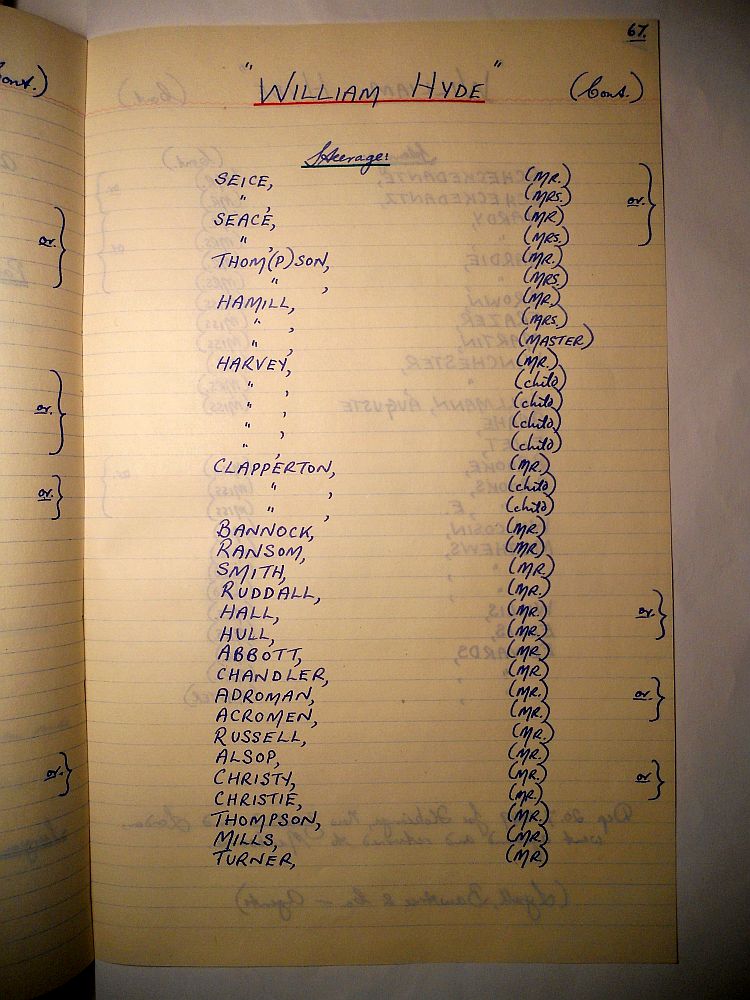 67.
"WILLIAM HYDE" (Cont.)
Steerage:
SEICE, (MR.)
" , (MRS.)
SEACE, (MR)
" , (MRS.)
THOM(P)SON, (MR.)
" , (MRS.)
HAMILL, (MR.)
" , (MRS.)
" , (MASTER)
HARVEY, (MR.)
" , (child)
" , (child)
" , (child)
" , (child)
CLAPPERTON, (MR.)
" , (child)
" , (child)
BANNOCK, (MR.)
RANSOM, (MR.)
SMITH, (MR.)
RUDDALL, (MR.)
HALL, (MR.)
HULL, (MR.)
ABBOTT, (MR.)
CHANDLER, (MR.)
ADROMAN, (MR.)
ACROMEN, (MR.)
RUSSELL, (MR.)
ALSOP, (MR.)
CHRISTY, (MR.)
CHRISTIE, (MR.)
THOMPSON, (MR.)
MILLS, (MR.)
TURNER, (MR)
or. }
or. }
or. }
or }
ont.)
or. }
or. }
or. }
or. }